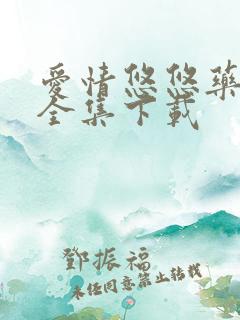 愛情悠悠藥
全集下載
鄧振福
未经同意禁止转载